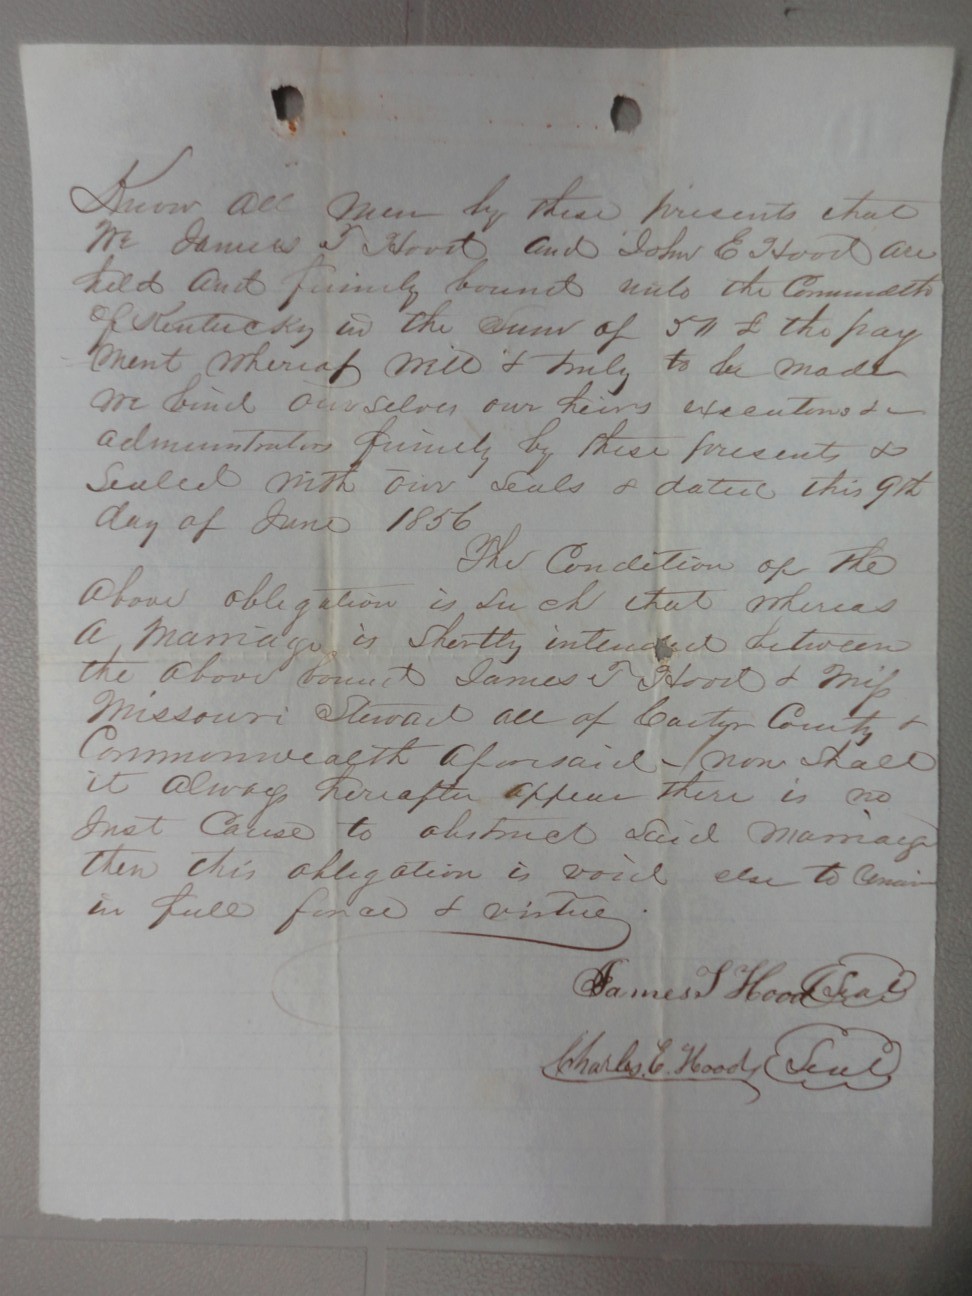 Know all men by these presents that
We James T Hood and John E Hood are
held and firmly bound unto the Commwlth
of Kentucky in the Sum of 50 £ the pay
ment whereof will & truly to be made
we bind ourselves our heirs executors &
administrators firmly by these presents &
Sealed with our seals & dated this 9th
day of June 1856
The Condition of the
above obligation is Such that whereas
A Marriage is shortly intended between
the above bound James T Hood & Miss
Missouri Steward all of Carter County &
Commonwealth aforesaid now shall
it always hereafter appear there is no
Just Cause to obstruct said Marriage
then this obligation is void else to
in full force & virtue.
James T Hood Seal
Charles E. Hood Seal